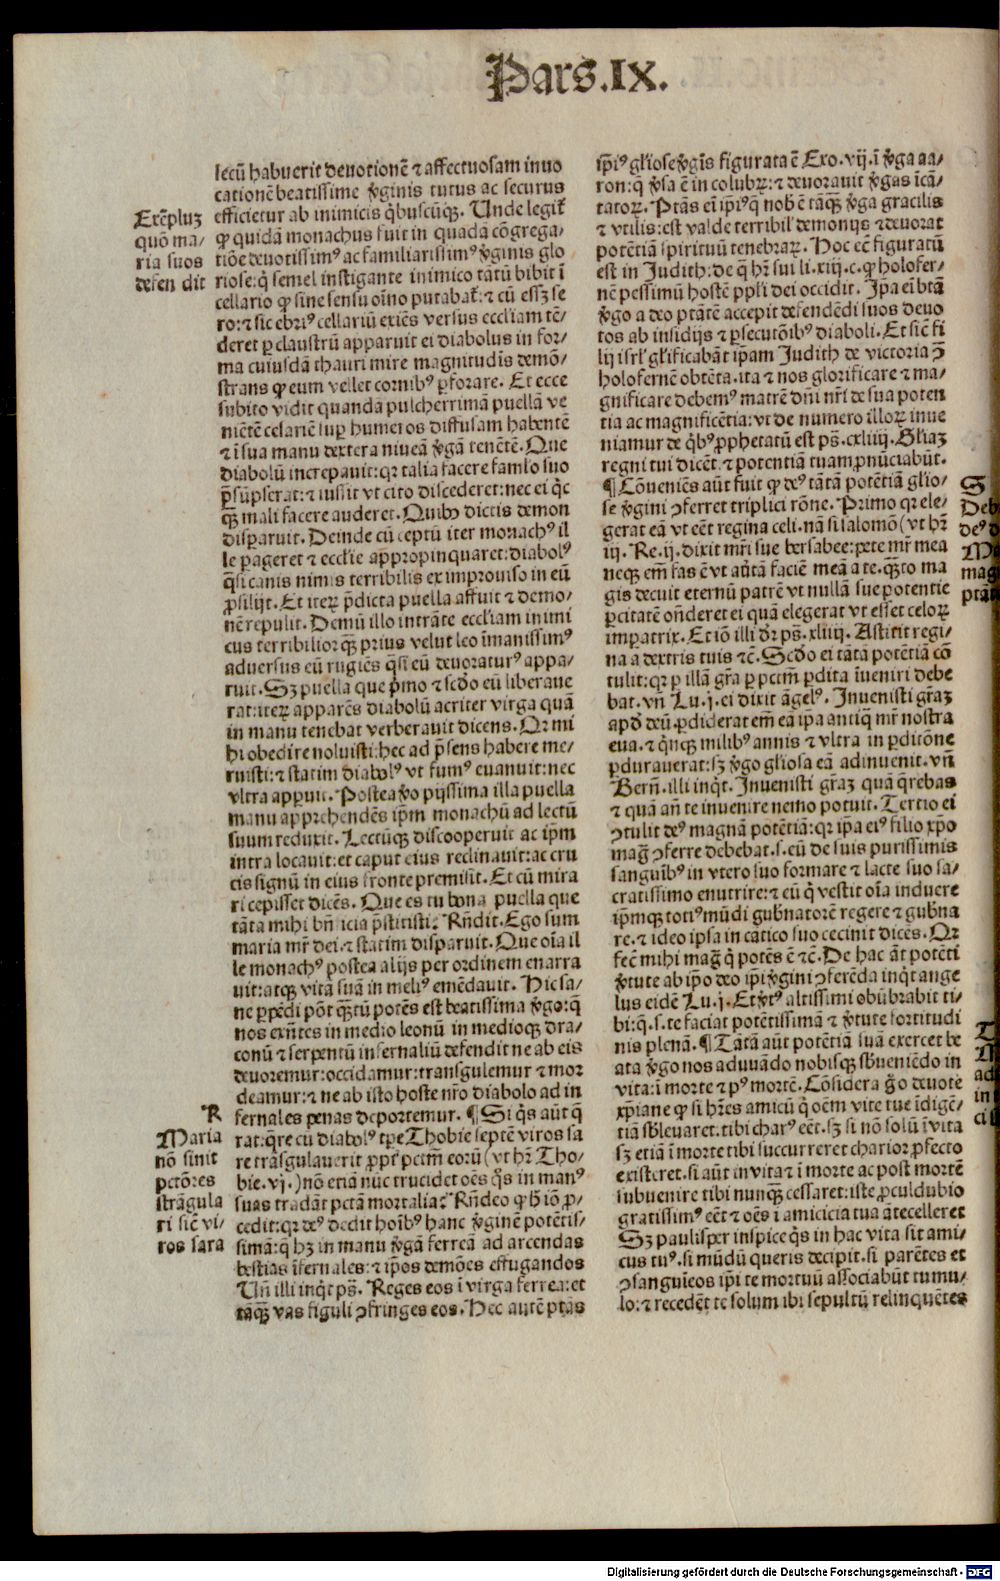 Pars.IX.
Exe̅pluꝫ
quō ma/
ria suos
defen dit
secū habuerit deuotionē ⁊ affectuosam inuo
cationē beatissime v̓ginis tutus ac securus
efficietur ab inimicis q̇buscūqꝫ. Unde legit̃
ꝙ quidā monachus fuit in quadā cōgrega/
tiōe deuotissimꝰ ac familiarissimꝰ v̓ginis glo
riose:q̇ semel instigante inimico tātū bibit ī
cellario ꝙ sine sensu oīno putabat̃:⁊ cū essꝫ se
ro:⁊ sic ebriꝰ cellariū exiēs versus eccliam tē/
deret ꝑ claustrū apparuit ei diabolus in for/
ma cuiusdā thauri mire magnitudīs demō/
strans ꝙ eum vellet cornibꝰ ꝑforare. Et ecce
subito vidit quandā pulcherrimā puellā ve
niētē cesariē suꝑ humeros diffusam habentē
⁊ ī sua manu dextera niueā v̓gā tenētē. Que
diabolū increpauit:qꝛ talia facere famlo suo
p̄sūpserat:⁊ iussit vt cito discederet:nec ei q̇c
qꝫ mali facere auderet. Quibꝰ dictis demon
disparuit. Deinde cū ceptū iter monachꝰ il
le ꝑageret ⁊ ecclie appropinquaret:diabolꝰ
q̄si canis nimis terribilis ex improuiso in eū
ꝓsilijt. Et iteꝝ p̄dicta puella affuit ⁊ demo/
nē repulit. Demū illo intrāte eccliam inimi
cus terribilior qꝫ prius velut leo īmanissimꝰ
aduersus eū rugiēs q̄si eū deuoraturꝰ appa/
ruit. Sꝫ puella que p̓mo ⁊ sc̄do eū liberaue
rat:iteꝝ apparēs diabolū acriter virga quā
in manu tenebat verberauit dicens. Qꝛ mi
hi obedire noluisti:hec ad p̄sens habere me/
ruisti:⁊ statim diabolꝰ vt fumꝰ euanuit:nec
vltra apꝑuit. Postea v̓o pijssima illa puella
manu apprehendēs ip̄m monachū ad lectū
suum reduxit. Lectūqꝫ discooperuit ac ip̄m
intra locauit:et caput eius reclinauit:ac cru
cis signū in eius fronte premisit. Et cū mira
ri cepisset dicēs. Que es tu bona puella que
tāta mihi bn̄ficia p̄stitisti? Rn̄dit. Ego sum
maria mr̄ dei.⁊ statim disparuit. Que oīa il
le monachꝰ postea alijs per ordinem enarra
uit:atqꝫ vitā suā in meliꝰ emēdauit. Hic sa/
ne ꝑpēdi pōt qꝫtū potēs est beatissima v̓go:q̇
nos exn̄tes in medio leonū in medioqꝫ dra/
conū ⁊ serpentū infernaliū defendit ne ab eis
deuoremur:occidamur:transgulemur ⁊ mor
deamur:⁊ ne ab isto hoste nr̄o diabolo ad in
fernales penas deportemur. ¶ Si q̇s aūt q̄
rat:q̄re cū diabolꝰ tp̄e Thobie septē viros sa
re trāsgulauerit ꝓpt̃ pctm̄ eorū (vt hr̄ Tho/
bie.vj.) nō etiā nūc trucidet oēs q̇s in manꝰ
suas tradāt pctā mortalia? Rn̄deo ꝙ ħ iō ꝓ/
cedit:qꝛ deꝰ dedit hoībꝰ hanc v̓ginē potētis/
simā:q̇ hꝫ in manu v̓gā ferreā ad arcendas
bestias īfernales:⁊ ip̄os demōes effugandos
Un̄ illi inq̇t ps̄. Reges eos ī virga ferrea:et
tāqꝫ vas figuli ꝯfringes eos. Hec autē ptās
R
Maria
nō sinit
pctōres
strāgula
ri sic̄ vi/
ros sara
sp̄iꝰ gl̄iose v̓gīs figurata ē Exo.vij.ī v̓ga aa/
ron:q̇ v̓sa ē in colubꝝ:⁊ deuorauit v̓gas īcā/
tatoꝝ. Ptās eī ip̄iꝰ q̇ nob̄ ē tāqꝫ v̓ga gracilis
⁊ vtilis:est valde terribil̓ demonijs ⁊ deuorat
potētiā spirituū tenebraꝝ. Hoc eē figuratū
est in Judith:de q̇ hr̄ sui li.xiij.c.ꝙ holofer/
nē pessimū hostē ppl̄i dei occidit. Ip̄a eī btā
v̓go a deo ptātē accepit defendēdi suos deuo
tos ab insidijs ⁊ ꝑsecutōibꝰ diaboli. Et sic̄ fi
lij isrl̓ gl̓ificabāt ip̄am Judith de victoria ꝯ̄
holofernē obtēta.ita ⁊ nos glorificare ⁊ ma/
gnificare debemꝰ matrē dn̄i nr̄i de sua poten
tia ac magnificētia:vt de numero illoꝝ inue
niamur de q̇bꝰ ꝓphetatū est ps̄.cxliiij. Gl̄iaꝫ
regni tui dicēt.⁊ potentiā tuam ꝓnūciabūt.
¶ Cōueniēs aūt fuit ꝙ deꝰ tātā potētiā gl̄io/
se v̓gini ꝯferret triplici rōne. Primo qꝛ ele/
gerat eā vt eēt regina celi.nā si salomō (vt hr̄
iij. Re.ij.dixit mr̄i sue bersabee:pete mr̄ mea
neqꝫ em̄ fas ē vt au̓tā faciē meā a te.qꝫto ma
gis decuit eternū patrē vt nullā sue potentie
ꝑcitatē on̄deret ei quā elegerat vt esset celoꝝ
imꝑatrix. Et iō illi dr̄ ps̄.xliiij. Astitit regi/
na a dextris tuis ⁊c̄. Sc̄do ei tātā potētiā cō
tulit:qꝛ ꝑ illā gr̄a ꝑ pctm̄ ꝑdita īueniri debe
bat.vn̄ Lu.j.ei dixit āgelꝰ. Inuenisti gr̄aꝫ
apd̓ deū.ꝑdiderat em̄ eā ip̄a antiq̄ mr̄ nostra
eua.⁊ q̇nqꝫ milibꝰ annis ⁊ vltra in ꝑditōne
ꝑdurauerat:sꝫ v̓go gl̄iosa eā adinuenit.vn̄
Bern̄.illi inq̇t. Inuenisti gr̄aꝫ quā q̄rebas
⁊ quā an̄ te inuenire nemo potuit. Tertio ei
ꝯtulit deꝰ magnā potētiā:qꝛ ip̄a eiꝰ filio xp̄o
mag̓ ꝯferre debebat.s.eū de suis purissimis
sanguībꝰ in vtero suo formare ⁊ lacte suo sa/
cratissimo enutrire:⁊ eū q̇ vestit oīa induere
ip̄mqꝫ totiꝰ mūdi gub̓natorē regere ⁊ gub̓na
re.⁊ ideo ipsa in cātico suo cecinit dicēs. Qꝛ
fec̄ mihi mag̓ q̇ potēs ē ⁊c̄. De hac āt potēti
v̓tute ab ip̄o deo ip̄i v̓gini ꝯferēda inq̇t ange
lus eidē Lu.j. Et v̓tꝰ altissimi obūbrabit ti/
bi:q̇.s.te faciat potētissimā ⁊ v̓tute fortitudi
nis plenā. ¶ Tātā aūt potētiā suā exercet be
ata v̓go nos aduuādo nobisqꝫ sb̓ueniēdo in
vita:ī morte ⁊ pꝰ mortē. Cōsidera g̓o deuote
xp̄iane ꝙ si hr̄es amicū q̇ oēm vite tue īdigē/
tiā sb̓leuaret.tibi charꝰ eēt.sꝫ si nō solū ī vita
sꝫ etiā ī morte tibi succurreret charior ꝓfecto
existeret.si aūt in vita ⁊ ī morte ac post mortē
subuenire tibi nunqꝫ cessaret:iste ꝓculdubio
gratissimꝰ eēt ⁊ oēs ī amicicia tua ātecelleret
Sꝫ paulisper inspice q̇s in hac vita sit ami/
cus tuꝰ.si mūdū queris decipit.si parētes et
ꝯsanguīeos ip̄i te mortuū associabūt tumu/
lo:⁊ recedēt te solum ibi sepultū relinquētes
Digitalisierung gefördert durch die Deutsche Forschungsgemeinschaft - DFG